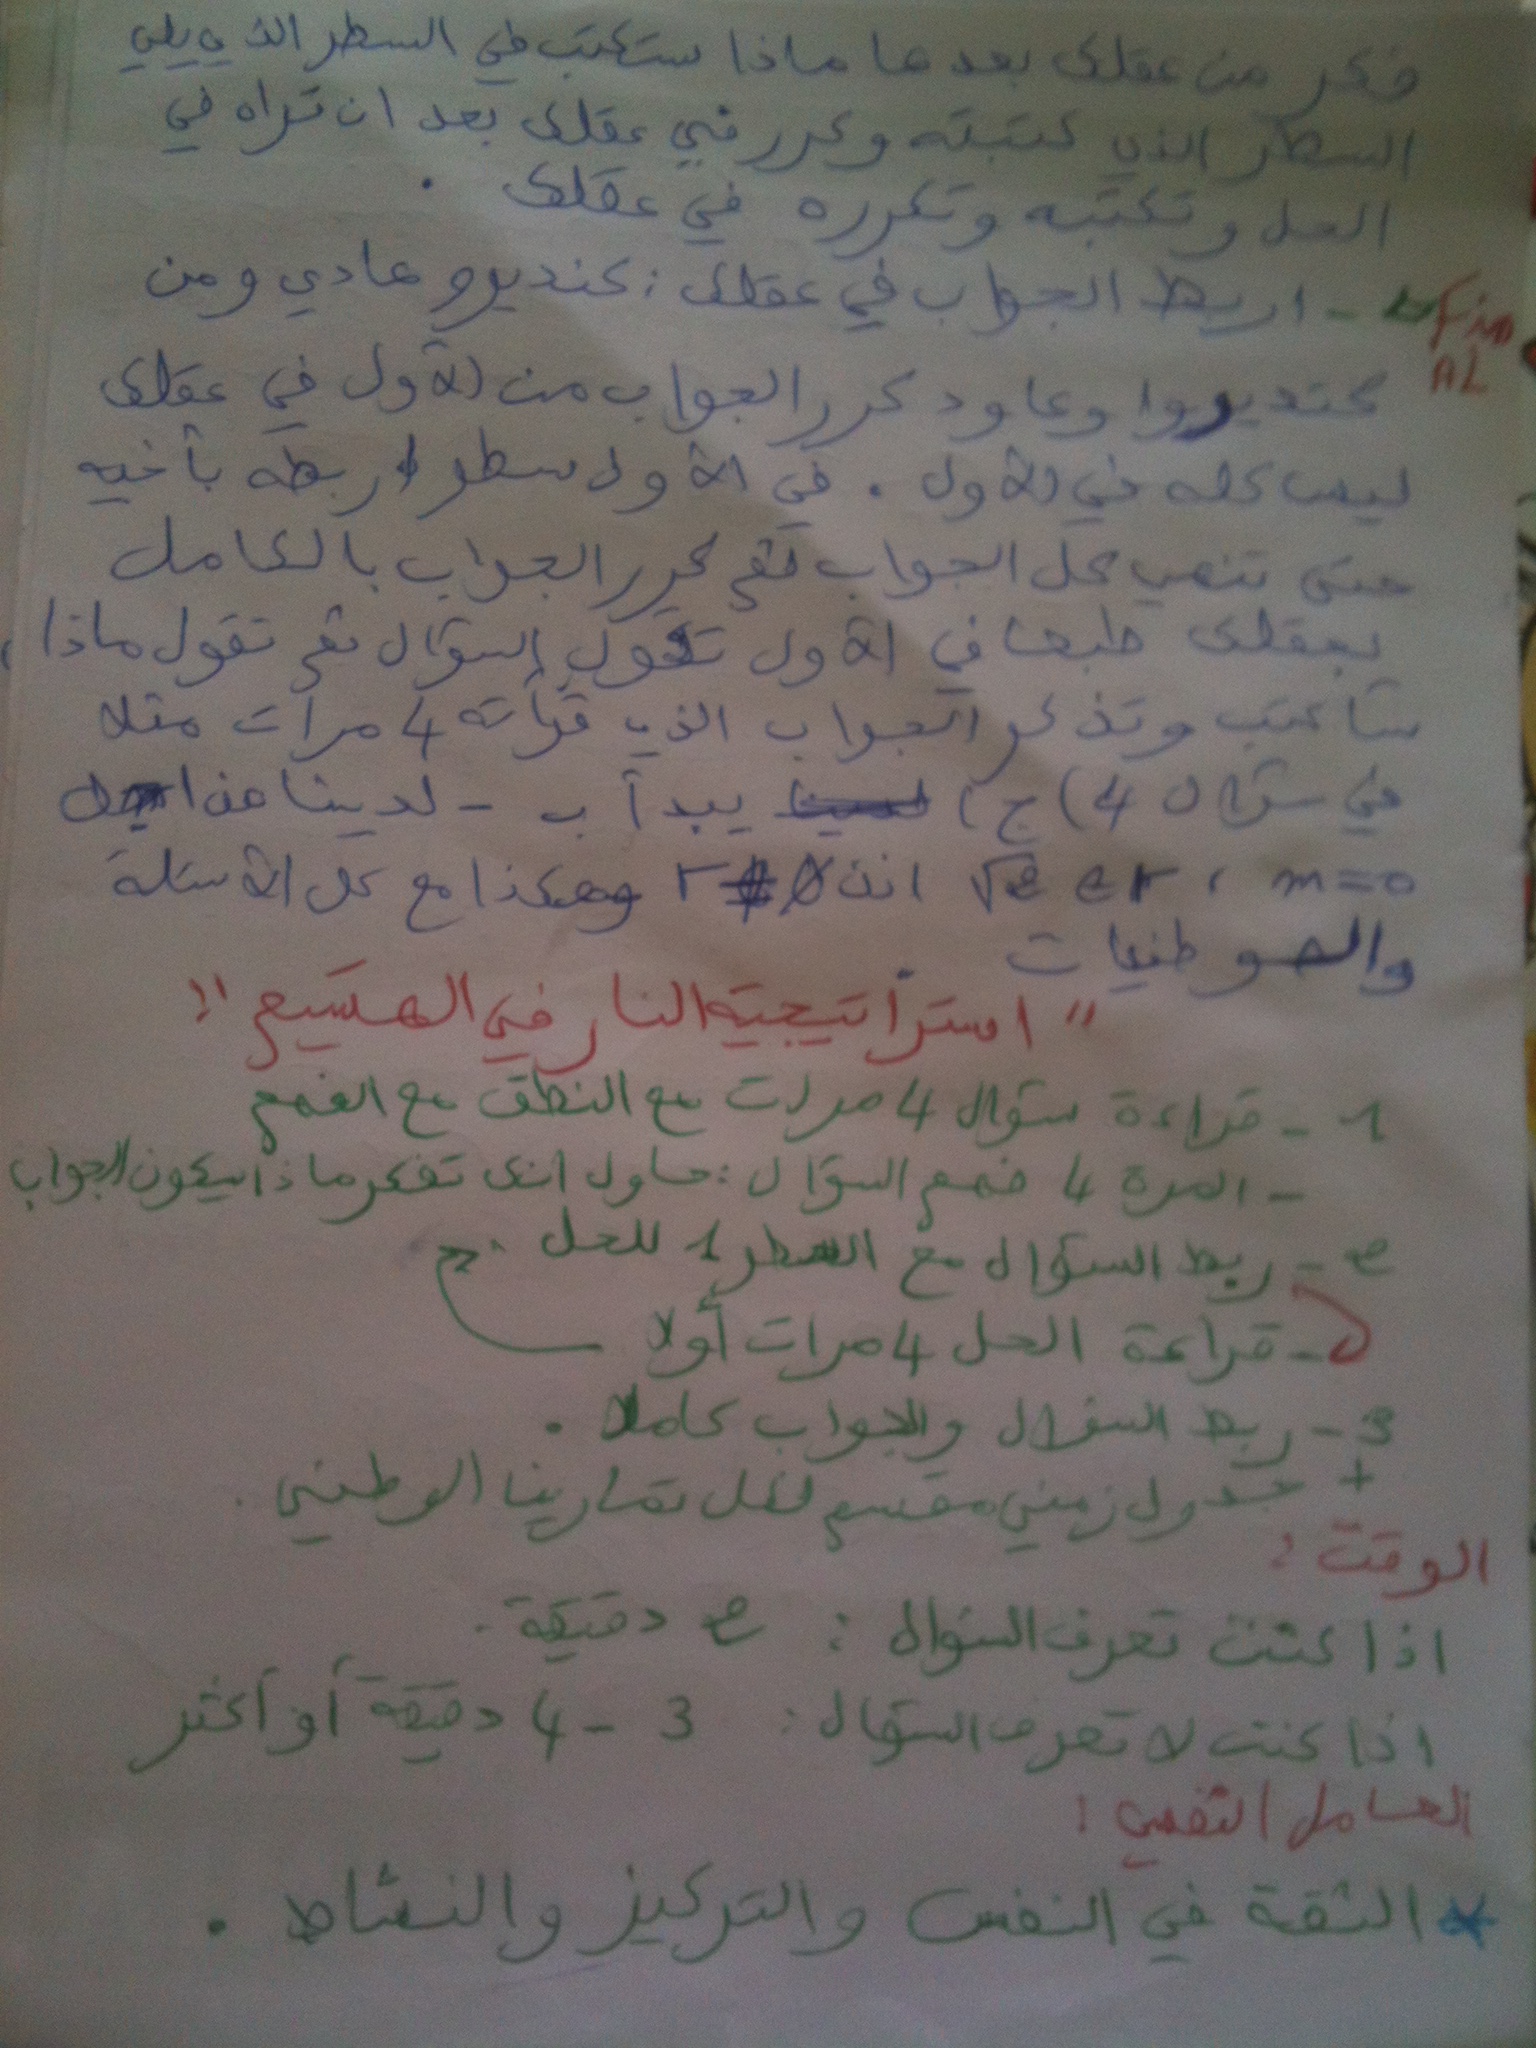 فكر من عقلك بعدها ماذا ستكتب في السطر الذي يلي
السطر الذي كتبته وكرر في عقلك بعد ان تراه في
الحل وتكتبه وتكرره في عقلك .
Fin AL - اربط الجواب في عقلك : كنديرو عادي ومن
كنديروا وعاود كرر الجواب من الأول في عقلك
ليس كله في الأول . في الأول سطر اربطه بأخيه
حتى تنهي كل الجواب ثم كرر الجواب بالكامل
بعقلك طبعا في الأول تقول السؤال ثم تقول ماذا
سأكتب وتذكر الجواب الذي قرأته 4 مرات مثلا
في سؤال 4) ج) يبدأ ب - لدينا من اجل
m=0 ، وهكذا مع كل الأسئلة
والوطنيات
" استراتيجية النار في الهشيم "
1 - قراءة سؤال 4 مرات مع النطق مع الفهم
- المرة 4 فهم السؤال : حاول انك تفكر ماذا سيكون الجواب
2 - ربط السؤال مع السطر 1 للحل .
- قراءة الحل 4 مرات أولا
3 - ربط السؤال والجواب كاملا .
+ جدول زمني مقسم لكل تمارين الوطني .
الوقت :
اذا كنت تعرف السؤال : 2 دقيقة .
اذا كنت لا تعرف السؤال : 3 - 4 دقيقة أو أكثر
العامل النفسي :
* الثقة في النفس والتركيز والنشاط .